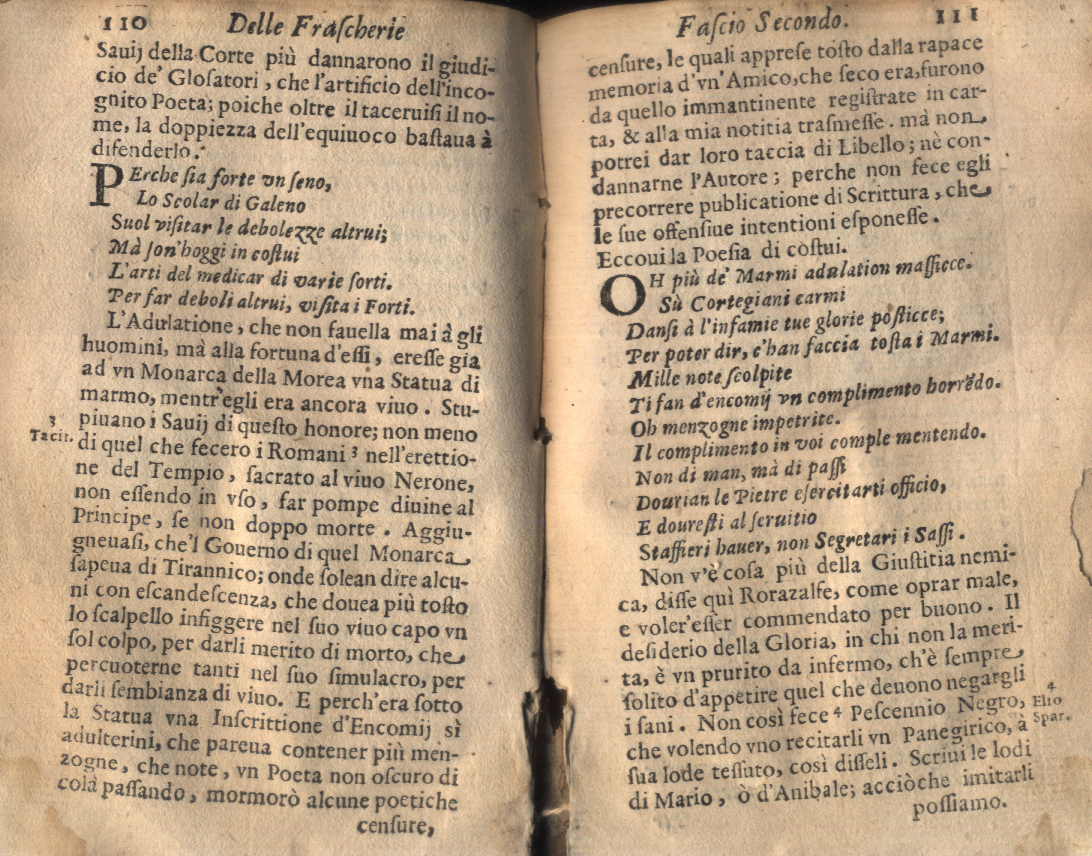 110 Delle Fraſcherie
Sauij della Corte più dannarono il giudi-
cio de' Gloſatori, che l'artificio dell'inco-
gnito Poeta; poiche oltre il taceruiſi il no-
me, la doppiezza dell'equiuoco baſtaua à
difenderlo.
PErche ſia forte vn ſeno,
Lo Scolar di Galeno
Suol viſitar le debolezze altrui;
Mà ſon'hoggi in coſtui
L'arti del medicar di varie ſorti.
Per far deboli altrui, viſita i Forti.
L'Adulatione, che non fauella mai à gli
huomini, mà alla fortuna d'eſſi, ereſſe già
ad vn Monarca della Morea vna Statua di
marmo, mentr'egli era ancora viuo. Stu-
piuano i Sauij di queſto honore; non meno
3
Tacit.
di quel che fecero i Romani ³ nell'erettio-
ne del Tempio, ſacrato al viuo Nerone,
non eſſendo in vſo, far pompe diuine al
Principe, ſe non doppo morte. Aggiu-
gneuaſi, che'l Gouerno di quel Monarca
ſapeua di Tirannico; onde ſolean dire alcu-
ni con eſcandeſcenza, che douea più toſto
lo ſcalpello infiggere nel ſuo viuo capo vn
ſol colpo, per darli merito di morto, che
percuoterne tanti nel ſuo ſimulacro, per
darli ſembianza di viuo. E perch'era ſotto
la Statua vna Inſcrittione d'Encomij sì
adulterini, che pareua contener più men-
zogne, che note, vn Poeta non oſcuro di
colà paſſando, mormorò alcune poetiche
cenſure,
Faſcio Secondo. 111
cenſure, le quali appreſe toſto dalla rapace
memoria d'vn'Amico, che ſeco era, furono
da quello immantinente regiſtrate in car-
ta, & alla mia notitia traſmeſſe. mà non
potrei dar loro taccia di Libello; nè con-
dannarne l'Autore; perche non fece egli
precorrere publicatione di Scrittura, che
le ſue offenſiue intentioni eſponeſſe.
Eccoui la Poeſia di coſtui.
OH più de' Marmi adulation maſſicce.
Sù Cortegiani carmi
Danſi à l'infamie tue glorie poſticce;
Per poter dir, c'han faccia toſta i Marmi.
Mille note ſcolpite
Ti fan d'encomij vn complimento horrẽdo.
Oh menzogne impetrite.
Il complimento in voi comple mentendo.
Non di man, mà di paſſi
Dourian le Pietre eſercitarti officio,
E doureſti al ſeruitio
Staffieri hauer, non Segretari i Saſſi.
Non v'è coſa più della Giuſtitia nemi-
ca, diſſe quì Rorazalfe, come oprar male,
e voler'eſſer commendato per buono. Il
deſiderio della Gloria, in chi non la meri-
ta, è vn prurito da infermo, ch'è ſempre
ſolito d'appetire quel che deuono negargli
i ſani. Non così fece ⁴ Peſcennio Negro,
4
Elio
Spar.
che volendo vno recitarli vn Panegirico, à
ſua lode teſſuto, così diſſeli. Scriui le lodi
di Mario, ò d'Anibale; acciòche imitarli
poſſiamo.